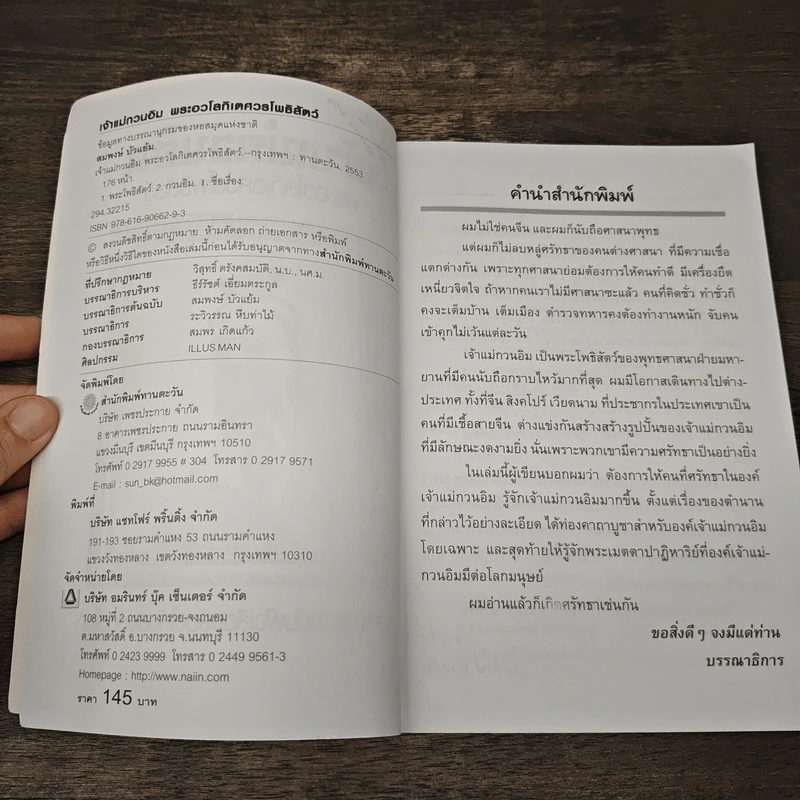 เจ้าแม่กวนอิม พระอวโลกิเตศวรโพธิสัตว์
ข้อมูลทางบรรณานุกรมของหอสมุดแห่งชาติ
สมพงษ์ บัวแย้ม.
เจ้าแม่กวนอิม พระอวโลกิเตศวรโพธิสัตว์.--กรุงเทพฯ : ทานตะวัน, 2553.
176 หน้า.
1. พระโพธิสัตว์. 2. กวนอิม. I. ชื่อเรื่อง.
294.32215
ISBN 978-616-90662-9-3
© สงวนลิขสิทธิ์ตามกฎหมาย ห้ามคัดลอก ถ่ายเอกสาร หรือพิมพ์
หรือวิธีหนึ่งวิธีใดของหนังสือเล่มนี้ก่อนได้รับอนุญาตจากทางสำนักพิมพ์ทานตะวัน
ที่ปรึกษากฎหมาย วิสุทธิ์ ตรังคสมบัติ, น.บ., นศ.ม.
บรรณาธิการบริหาร ธีร์รัชต์ เอี่ยมตระกูล
บรรณาธิการต้นฉบับ สมพงษ์ บัวแย้ม
บรรณาธิการ ระวิวรรณ หีบท่าไม้
กองบรรณาธิการ สมพร เกิดแก้ว
ศิลปกรรม ILLUS MAN
จัดพิมพ์โดย
สำนักพิมพ์ทานตะวัน
บริษัท เพชรประกาย จำกัด
8 อาคารเพชรประกาย ถนนรามอินทรา
แขวงมีนบุรี เขตมีนบุรี กรุงเทพฯ 10510
โทรศัพท์ 0 2917 9955 # 304 โทรสาร 0 2917 9571
E-mail : sun_bk@hotmail.com
พิมพ์ที่
บริษัท แซทโฟร์ พริ้นติ้ง จำกัด
191-193 ซอยรามคำแหง 53 ถนนรามคำแหง
แขวงวังทองหลาง เขตวังทองหลาง กรุงเทพฯ 10310
จัดจำหน่ายโดย
บริษัท อมรินทร์ บุ๊ค เซ็นเตอร์ จำกัด
108 หมู่ที่ 2 ถนนบางกรวย-จงถนอม
ต.มหาสวัสดิ์ อ.บางกรวย จ.นนทบุรี 11130
โทรศัพท์ 0 2423 9999 โทรสาร 0 2449 9561-3
Homepage : http://www.naiin.com
ราคา 145 บาท
คำนำสำนักพิมพ์
ผมไม่ใช่คนจีน และผมก็นับถือศาสนาพุทธ
แต่ผมก็ไม่ลบหลู่ศรัทธาของคนต่างศาสนา ที่มีความเชื่อ
แตกต่างกัน เพราะทุกศาสนาย่อมต้องการให้คนทำดี มีเครื่องยึด
เหนี่ยวจิตใจ ถ้าหากคนเราไม่มีศาสนาซะแล้ว คนที่คิดชั่ว ทำชั่วก็
คงจะเต็มบ้าน เต็มเมือง ตำรวจทหารคงต้องทำงานหนัก จับคน
เข้าคุกไม่เว้นแต่ละวัน
เจ้าแม่กวนอิม เป็นพระโพธิสัตว์ของพุทธศาสนาฝ่ายมหา-
ยานที่มีคนนับถือกราบไหว้มากที่สุด ผมมีโอกาสเดินทางไปต่าง-
ประเทศ ทั้งที่จีน สิงคโปร์ เวียดนาม ที่ประชากรในประเทศเขาเป็น
คนที่มีเชื้อสายจีน ต่างแข่งกันสร้างสร้างรูปปั้นของเจ้าแม่กวนอิม
ที่มีลักษณะงดงามยิ่ง นั่นเพราะพวกเขามีความศรัทธาเป็นอย่างยิ่ง
ในเล่มนี้ผู้เขียนบอกผมว่า ต้องการให้คนที่ศรัทธาในองค์
เจ้าแม่กวนอิม รู้จักเจ้าแม่กวนอิมมากขึ้น ตั้งแต่เรื่องของตำนาน
ที่กล่าวไว้อย่างละเอียด ได้ท่องคาถาบูชาสำหรับองค์เจ้าแม่กวนอิม
โดยเฉพาะ และสุดท้ายให้รู้จักพระเมตตาปาฏิหาริย์ที่องค์เจ้าแม่-
กวนอิมมีต่อโลกมนุษย์
ผมอ่านแล้วก็เกิดศรัทธาเช่นกัน
ขอสิ่งดี ๆ จงมีแด่ท่าน
บรรณาธิการ